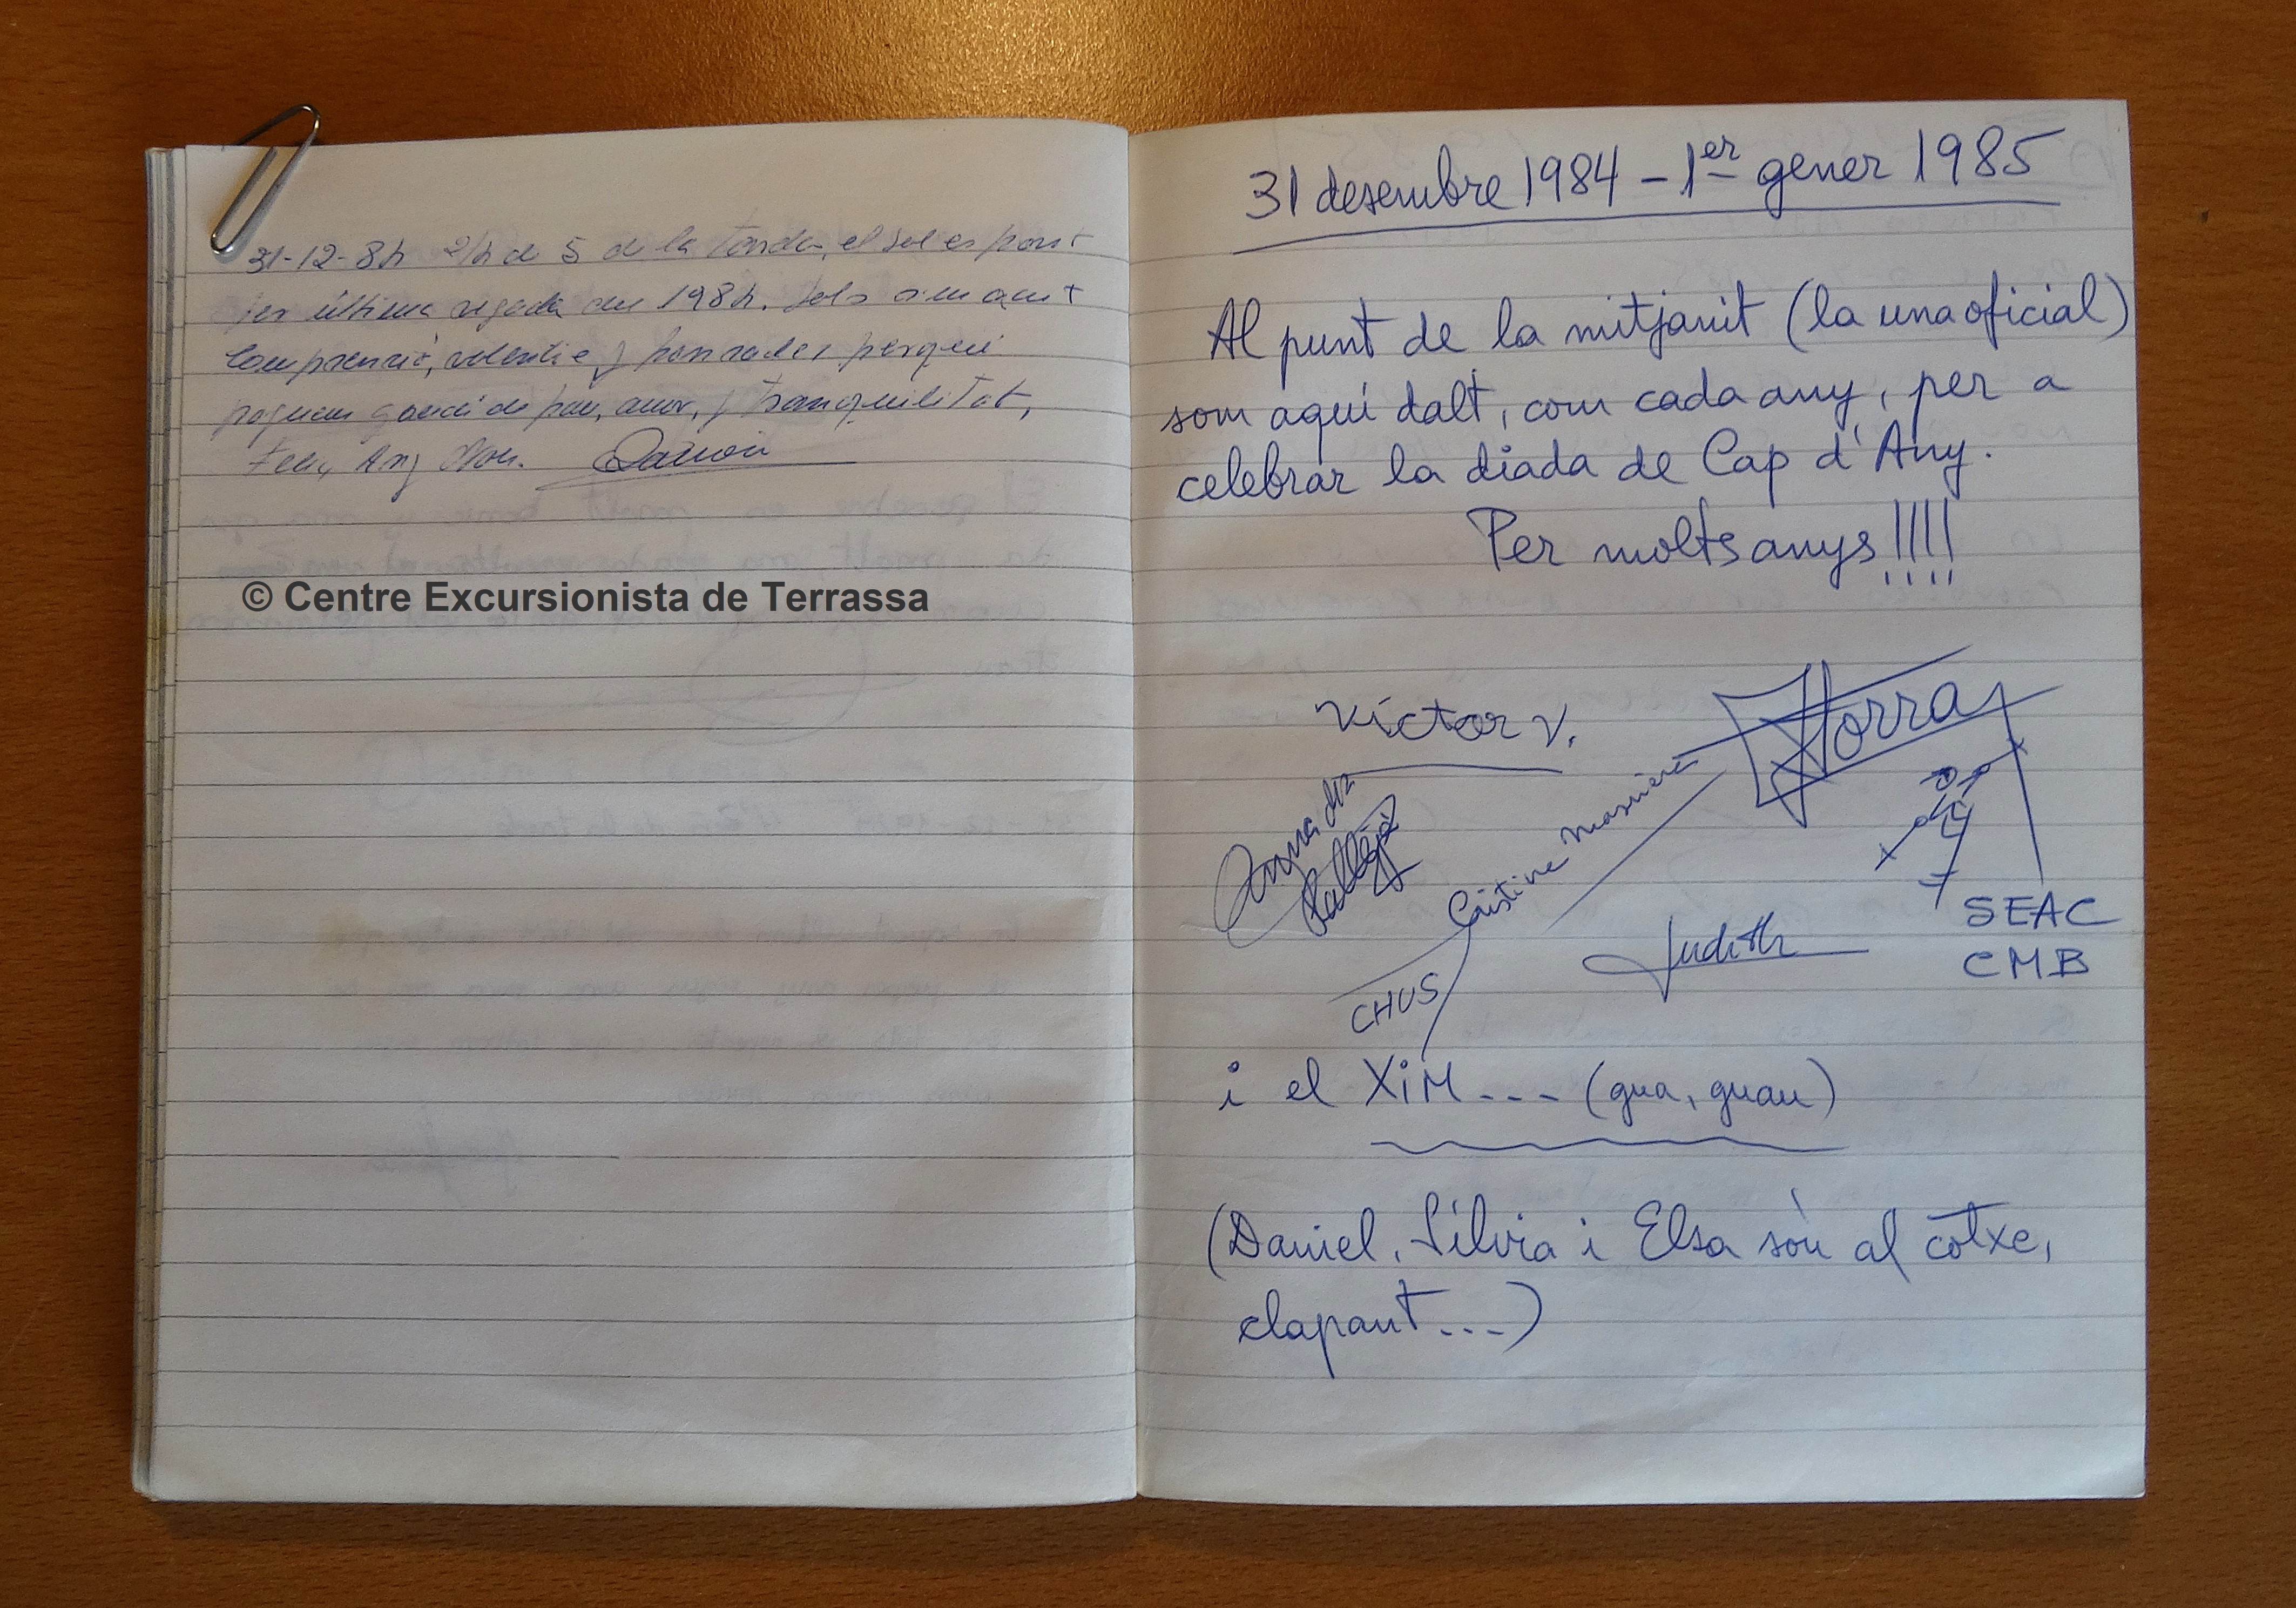 31-12-84 2/4 de 5 de la tarda, el sol es pont
per última vegada en 1984.
perquè
de pau, amor, y tranquilitat,
Feliç Any Nou.
© Centre Excursionista de Terrassa
31 desembre 1984 - 1er gener 1985
Al punt de la mitjanit (la una oficial)
som aquí dalt, com cada any, per a
celebrar la diada de Cap d'Any.
Per molts anys!!!!
Víctor V.
Torra
Anna
Cristina
SEAC
CMB
Judith
CHUS
i el XiM... (gua, guau)
(Daniel, Sílvia i Elsa són al cotxe,
clapant...)